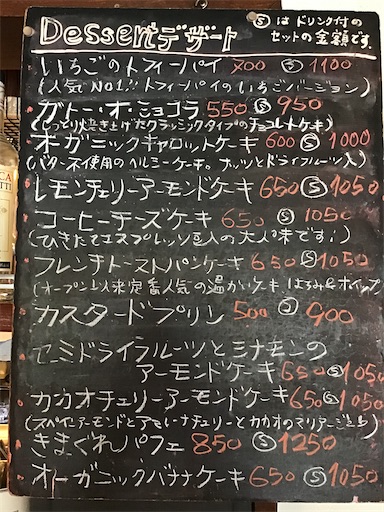 Dessert デザート
Ⓢは ドリンク付の
セットの金額です。
いちごのトフィーパイ 700 Ⓢ 1100
(人気NO1!! トフィーパイのいちごバージョン)
ガトー・オ・ショコラ 550 Ⓢ 950
(しっとり焼き上げたクラシックタイプのチョコレートケーキ)
オーガニックキャロットケーキ 600 Ⓢ 1000
(バター不使用のヘルシーケーキ。ナッツとドライフルーツ入)
レモンチェリーアーモンドケーキ 650 Ⓢ 1050
コーヒーチーズケーキ 650 Ⓢ 1050
(ひきたてエスプレッソ豆入の大人味です!)
フレンチトーストパンケーキ 650 Ⓢ 1050
(オープン以来定番人気の温かいケーキ はちみつ&ホイップ)
カスタードプリン 500 Ⓢ 900
セミドライフルーツとシナモンの
アーモンドケーキ 650 Ⓢ 1050
カカオチェリーアーモンドケーキ 650 Ⓢ 1050
(スペインアーモンドとアメリカチェリーとカカオのマリアージュ)
きまぐれパフェ 850 Ⓢ 1250
オーガニックバナナケーキ 650 Ⓢ 1050